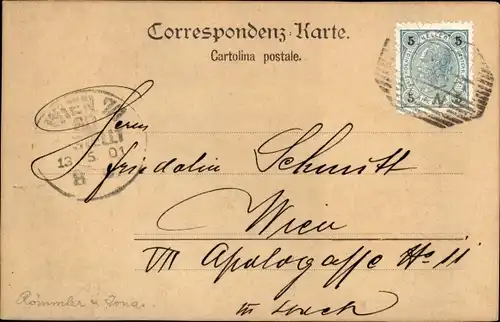 Correspondenz-Karte.
Cartolina postale.
5 HELLER 5
5
WIEN
13 5 01
8
Herrn
Friedolin Schmitt
Wien
VII Apollogasse No 11
III Stock
Römmler u Jonas